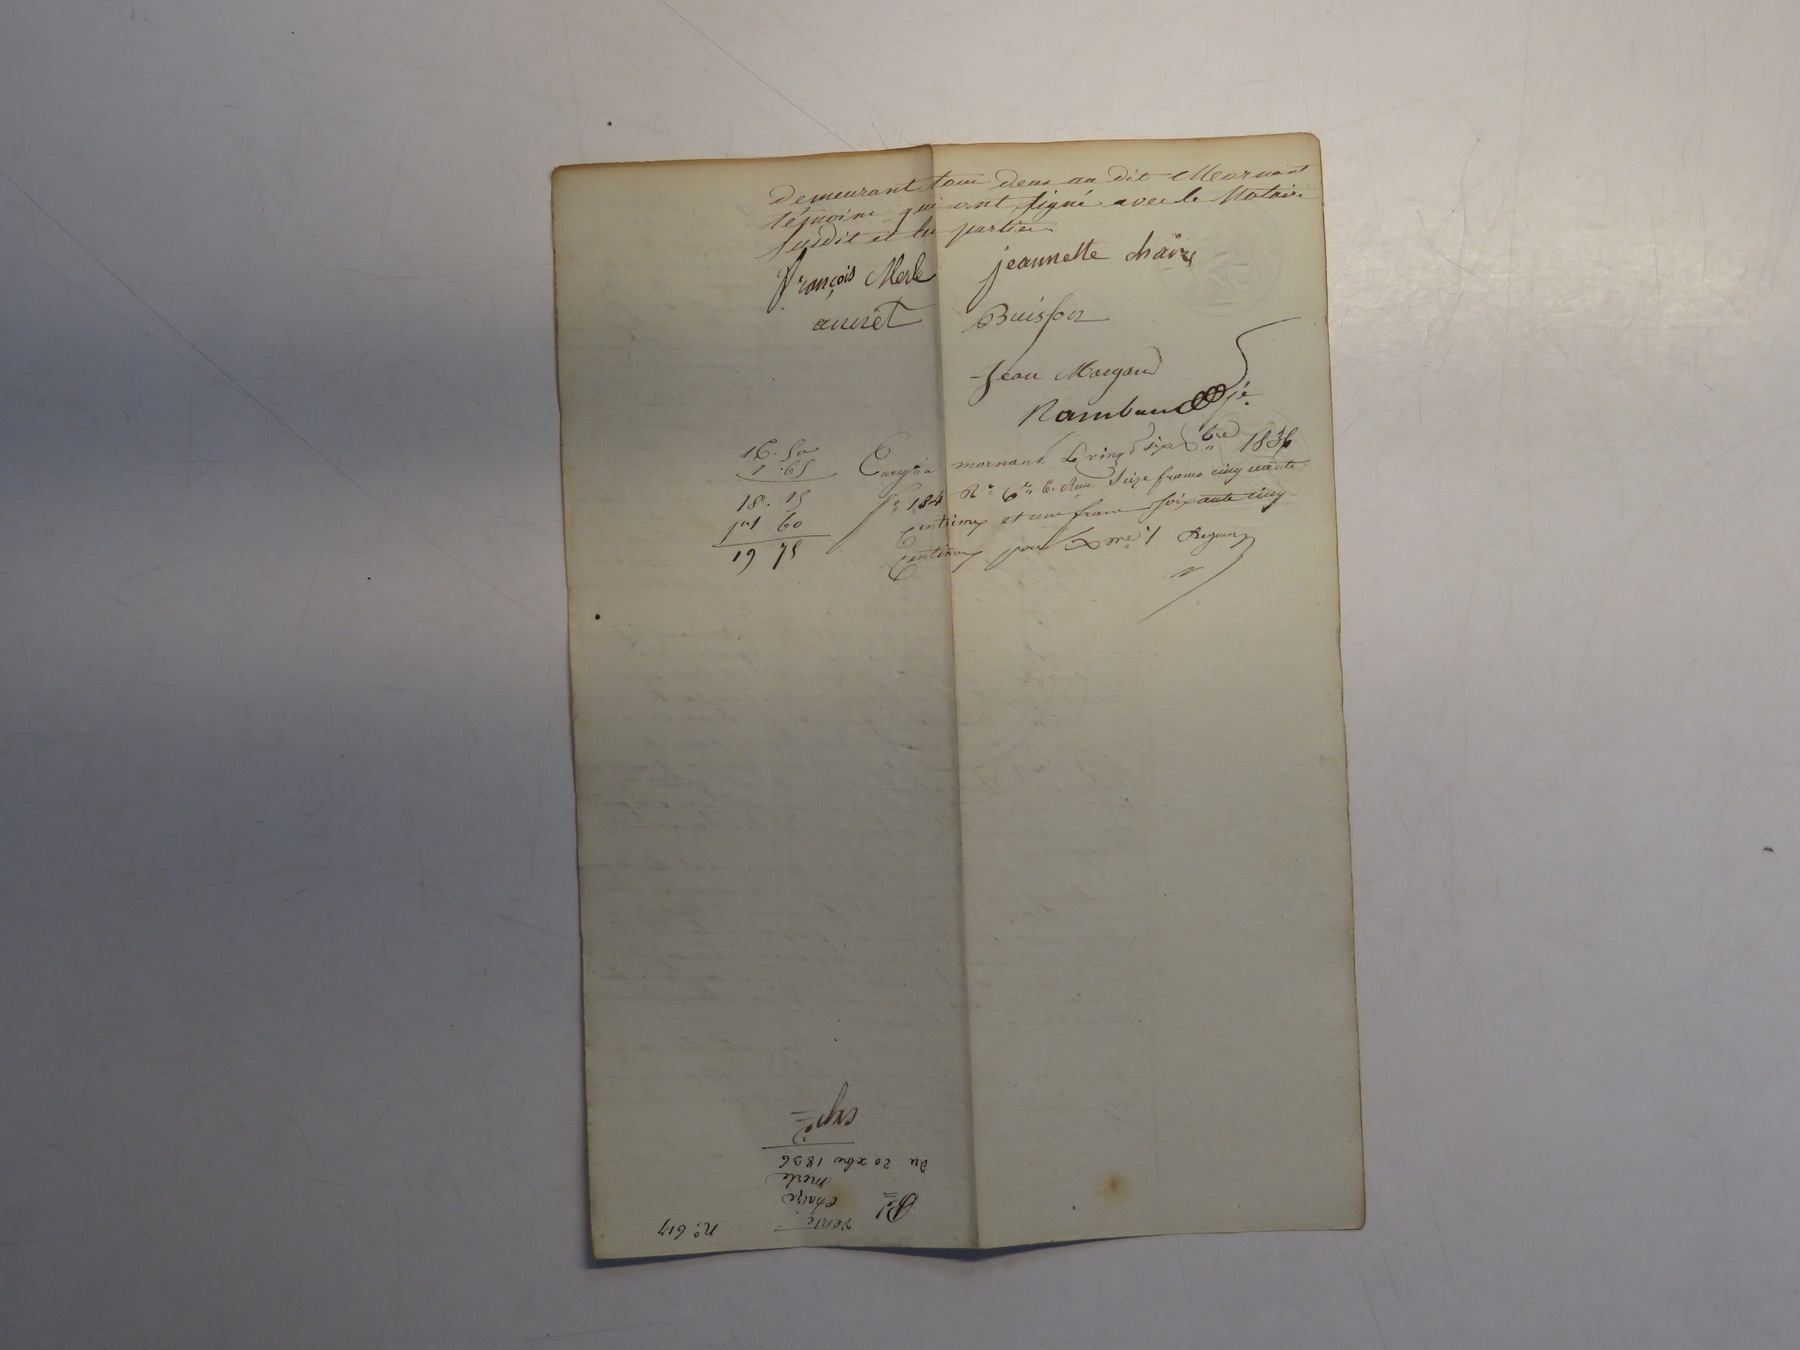 demeurant tous deux au dit Mornant
témoins qui ont signé avec le Notaire
susdit et les parties
françois Merle jeannette chaize
Buisson
Jean
Rambaud
16. 50
1. 65
18. 15
1 60
19 75
mornant Le vingt six xbre 1836
fo 184 Ro Seize francs cinquante
Centimes et un franc soixante cinq
Centimes pour
No 617
vente
chaize
merle
du 20 xbre 1836
expée